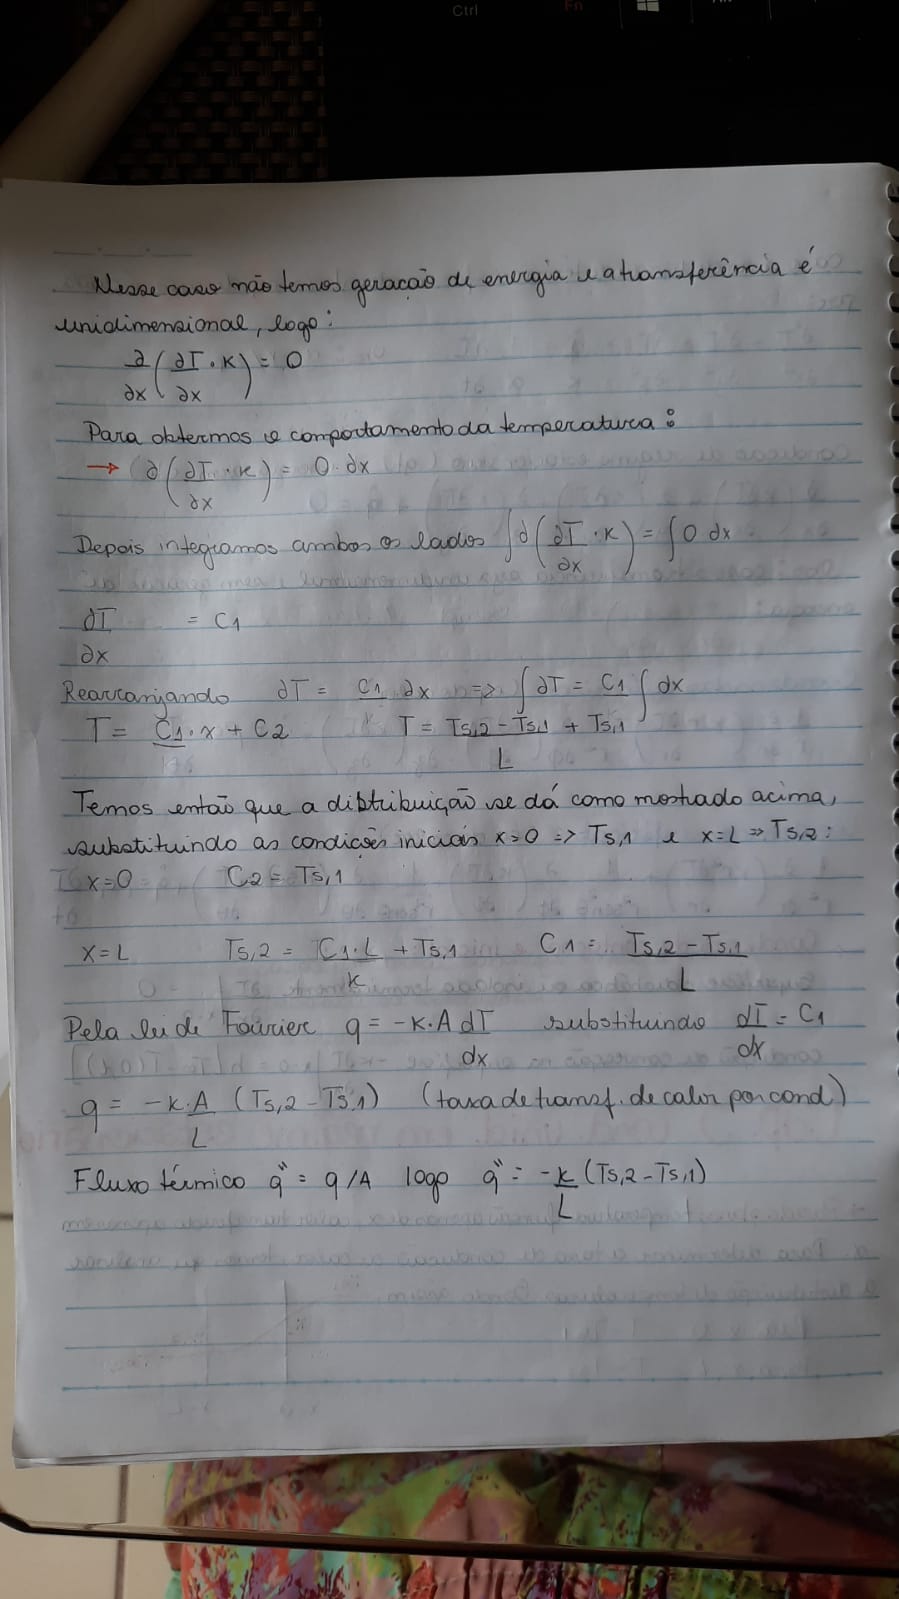 Ctrl
Fn
Nesse caso não temos geração de energia e a transferência é
unidimensional, logo:
∂/∂x (∂T/∂x · K) = 0
Para obtermos o comportamento da temperatura:
→ ∂(∂T/∂x · K) = 0 · ∂x
Depois integramos ambos os lados ∫∂(∂T/∂x · K) = ∫0 dx
∂T/∂x = C1
Rearranjando ∂T = C1 ∂x => ∫∂T = C1 ∫dx
T = C1 · x + C2 T = Ts,2 - Ts,1/L + Ts,1
Temos então que a distribuição se dá como mostrado acima,
substituindo as condições iniciais x=0 => Ts,1 e x=L => Ts,2:
x=0 C2 = Ts,1
x=L Ts,2 = C1·L/k + Ts,1 C1 = Ts,2 - Ts,1/L
Pela lei de Fourier q = -k·A dT/dx substituindo dT/dx = C1
q = -k·A/L (Ts,2 - Ts,1) (taxa de transf. de calor por cond)
Fluxo térmico q" = q/A logo q" = -k/L (Ts,2 - Ts,1)